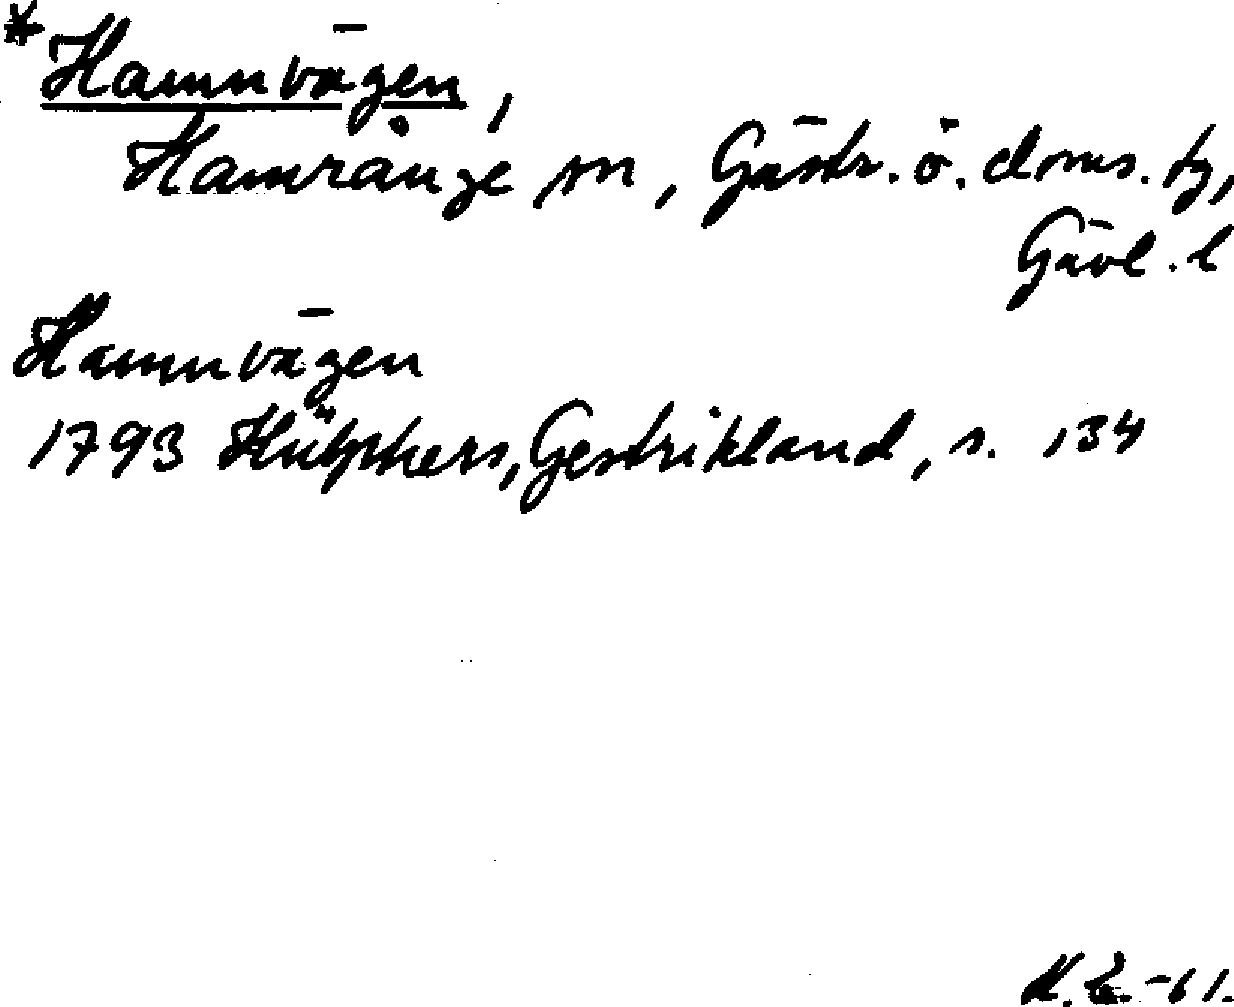 *Hamnvägen,
Hamrånge sn, Gästr. ö. doms. tg,
Gävl. l
Hamnvägen
1793 Hülphers, Gestrikland, s. 134